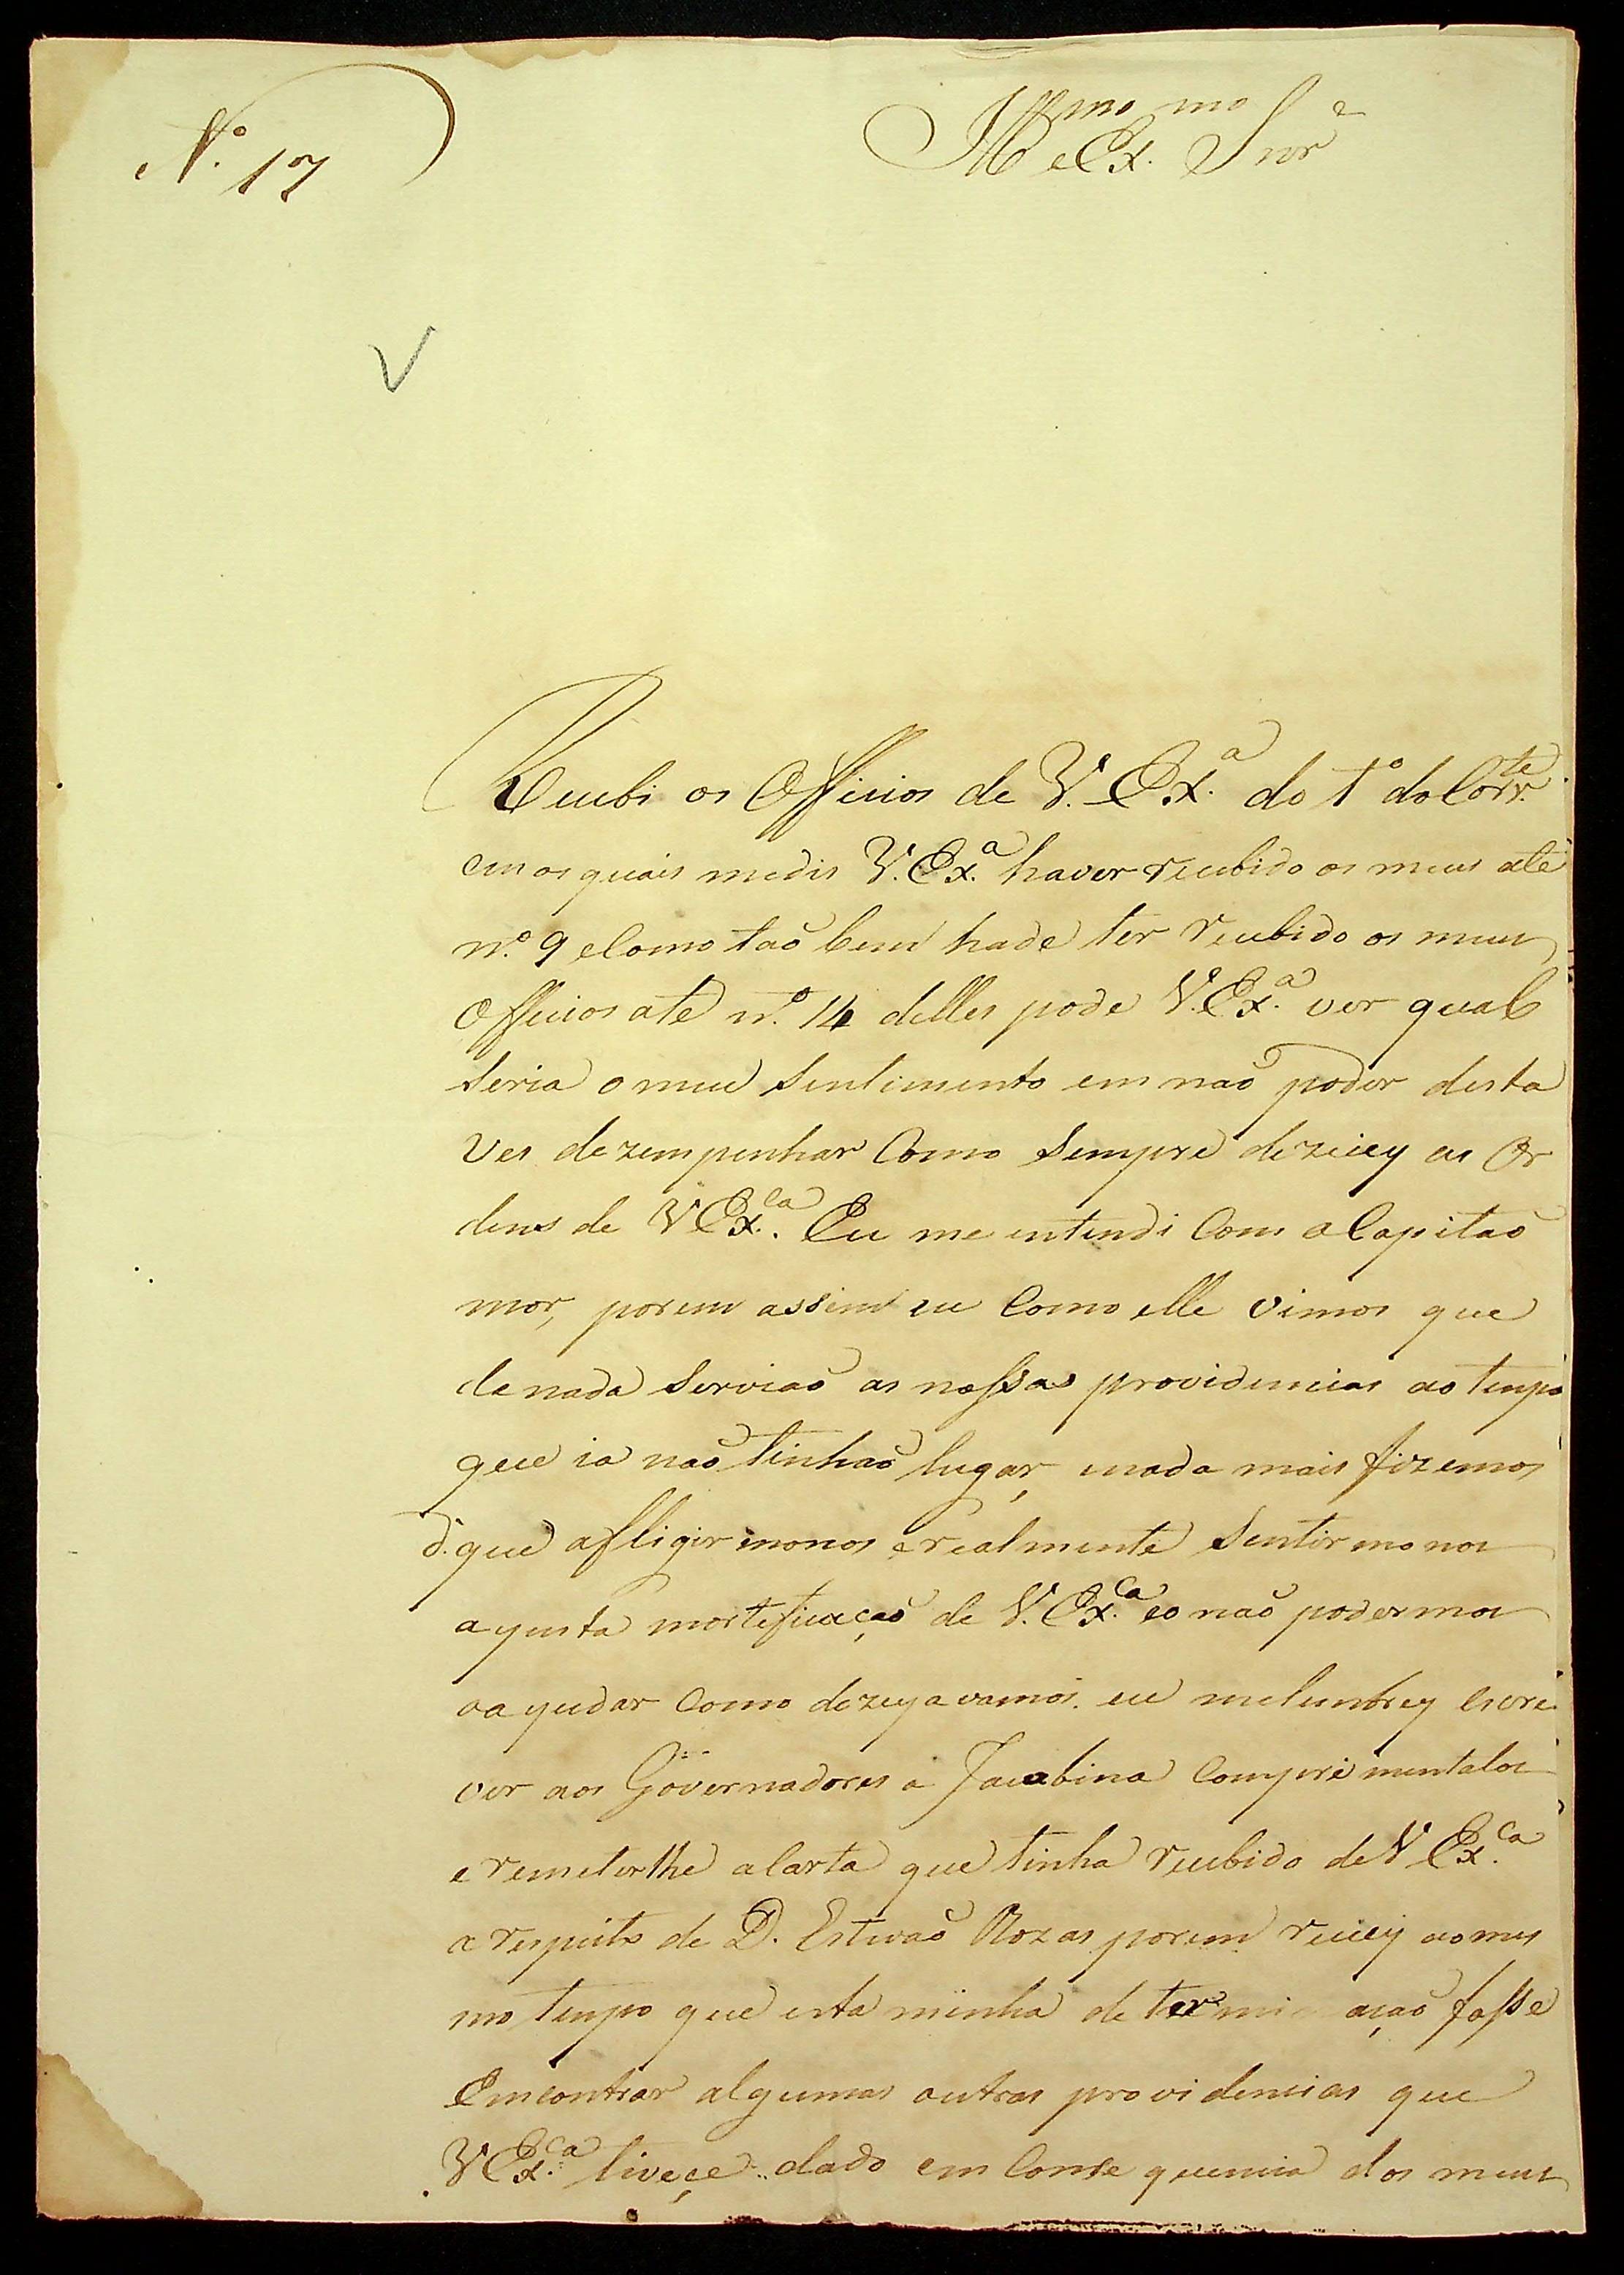 N.º 17
Ill.mo e Ex.mo Snr.e
Recebi os Officios de V. Ex.ª do 1º do Corr.te
em os quais me dis V. Ex.ª haver recebido os meus até
n.º 9 e Como taõ bem hade ter recebido os meus
Officios ate n.º 14 delles pode V. Ex.ª ver qual
Seria o meu Sentimento em naõ poder desta
Ves dezempenhar Como Sempre dezeiey as Or
dens de V Ex.ca. Eu me entendi Com o Capitaõ
mor, porem assim eu Como elle vimos que
de nada Serviaõ as nossas providencias ao tempo
que ia naõ tinhaõ lugar, e nada mais fizemos
d. que afligirmonos e realmente Sentirmonos
a justa mortificaçaõ de V. Ex.ca e o naõ podermos
o ajudar Como dezejavamos. eu me lembrey escre
ver aos Governadores a Jacobina Comprimentalos
e remeterlhe a Carta que tinha recebido de V Ex.ca
a respeito de D. Estevaõ Rozas porem recey ao mes
mo tempo que esta minha determinaçaõ fosse
Emcontrar algumas outras providencias que
V Ex.ca tiveçe dado em Consequencia dos meus